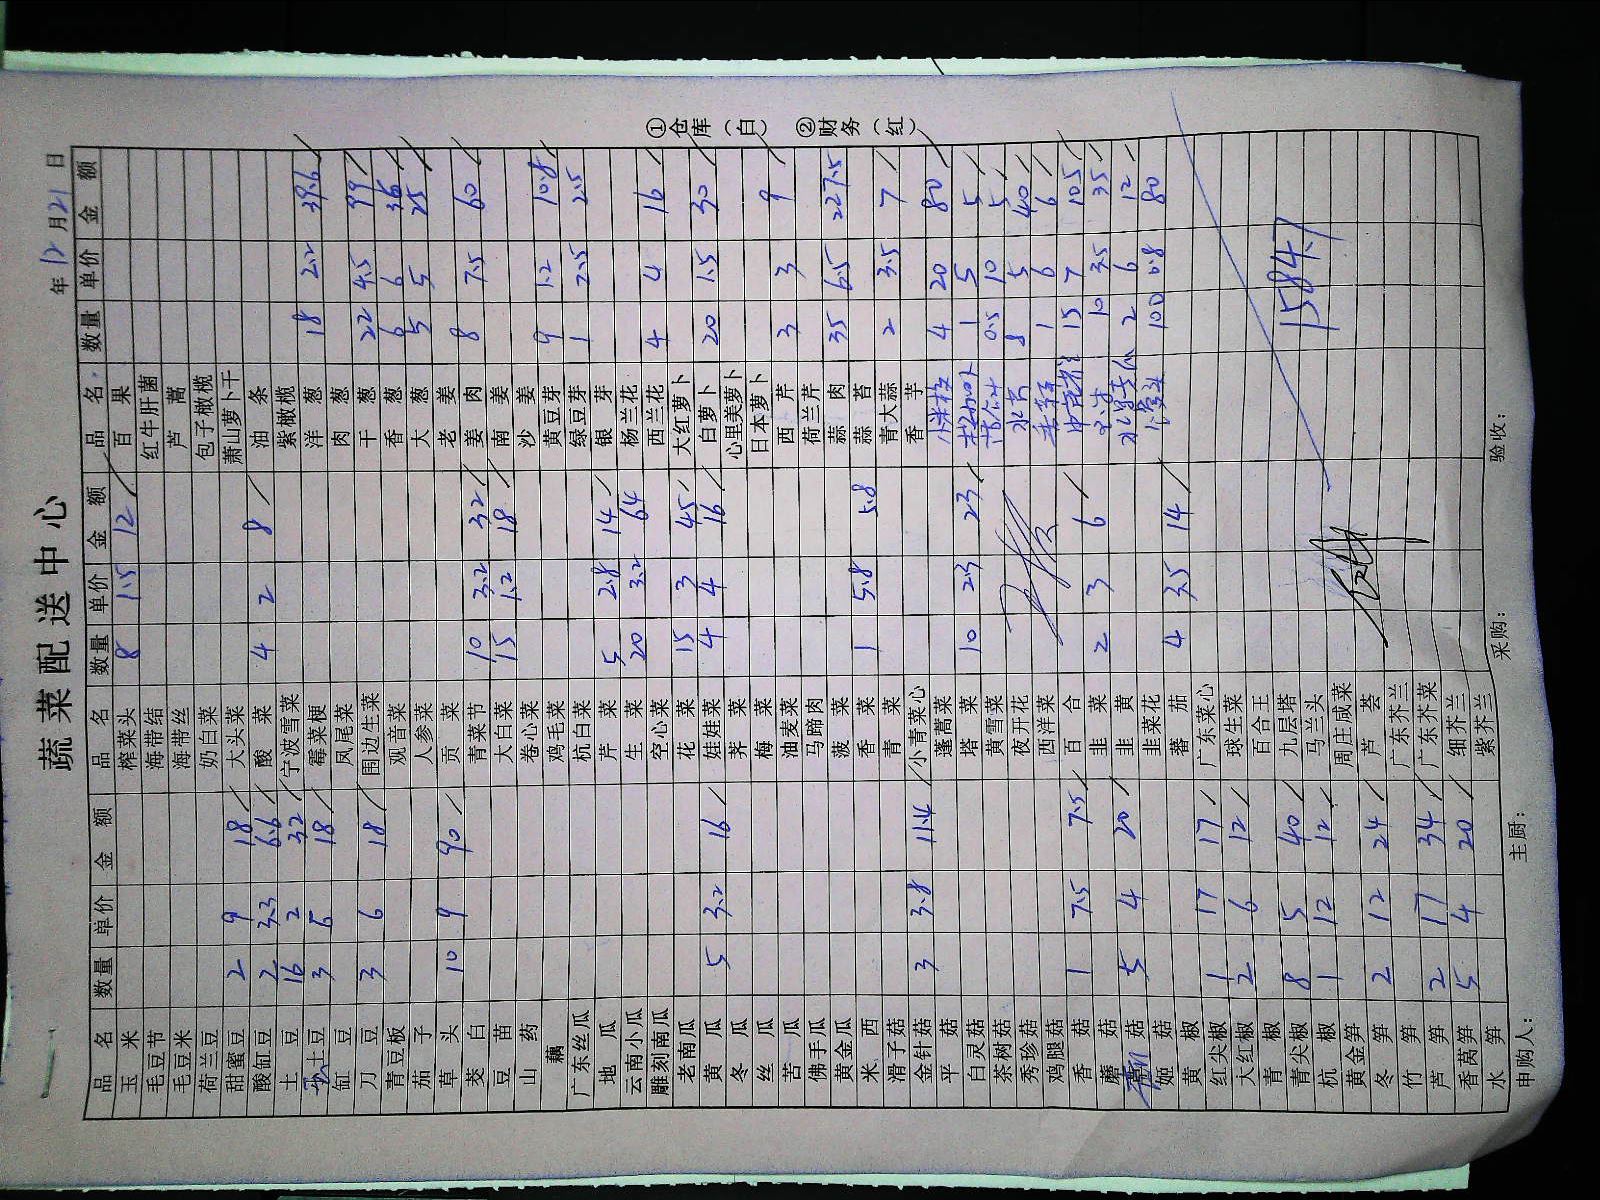 蔬菜配送中心
年 12 月 21 日
品名 数量 单价 金额 品名 数量 单价 金额 品名 数量 单价 金额
玉米 榨菜头 8 1.5 12 百果
毛豆节 海带结 红牛肝菌
毛豆米 海带丝 芦蒿
荷兰豆 奶白菜 包子橄榄
甜蜜豆 2 9 18 大头菜 萧山萝卜干
酸缸豆 2 3.3 6.6 酸菜 4 2 8 油条
土豆 16 2 32 宁波雪菜 紫橄榄
小土豆 3 6 18 霉菜梗 洋葱 18 2.2 39.6
缸豆 凤尾菜 肉葱
刀豆 3 6 18 围边生菜 干葱 22 4.5 99
青豆板 观音菜 香葱 6 6 36
茄子 人参菜 大葱 5 5 25
草头 10 9 90 贡菜 老姜
茭白 青菜节 10 3.2 32 姜肉 8 7.5 60
豆苗 大白菜 15 1.2 18 南姜
山药 卷心菜 沙姜
藕 鸡毛菜 黄豆芽 9 1.2 10.8
广东丝瓜 杭白菜 绿豆芽 1 2.5 2.5
地瓜 芹菜 5 2.8 14 银芽
云南小瓜 生菜 20 3.2 64 杨兰花
雕刻南瓜 空心菜 西兰花 4 4 16
老南瓜 花菜 15 3 45 大红萝卜
黄瓜 5 3.2 16 娃娃菜 4 4 16 白萝卜 20 1.5 30
冬瓜 荠菜 心里美萝卜
丝瓜 梅菜 日本萝卜
苦瓜 油麦菜 西芹 3 3 9
佛手瓜 马蹄肉 荷兰芹
黄金瓜 菠菜 蒜肉 35 6.5 227.5
米西 香菜 1 5.8 5.8 蒜苔
滑子菇 青菜 青大蒜 2 3.5 7
金针菇 3 3.8 11.4 小青菜心 香芋
平菇 蓬蒿菜 4 20 80
白灵菇 塔菜 10 2.3 23 1 5 5
茶树菇 黄雪菜 0.5 10 5
秀珍菇 夜开花 8 5 40
鸡腿菇 西洋菜 1 6 6
香菇 1 7.5 7.5 百合 15 7 105
蘑菇 韭菜 2 3 6 10 3.5 35
菇 5 4 20 韭黄 2 6 12
姬菇 韭菜花 100 0.8 80
黄椒 番茄 4 3.5 14
红尖椒 1 17 17 广东菜心
大红椒 2 6 12 球生菜
青椒 百合王
青尖椒 8 5 40 九层塔
杭椒 1 12 12 马兰头 1584.7
黄金笋 周庄咸菜
冬笋 2 12 24 芦荟
竹笋 广东芥兰
芦笋 2 17 34 广东芥菜
香莴笋 5 4 20 细芥兰
水笋 紫芥兰
申购人： 主厨： 采购： 验收：
①仓库（白） ②财务（红）